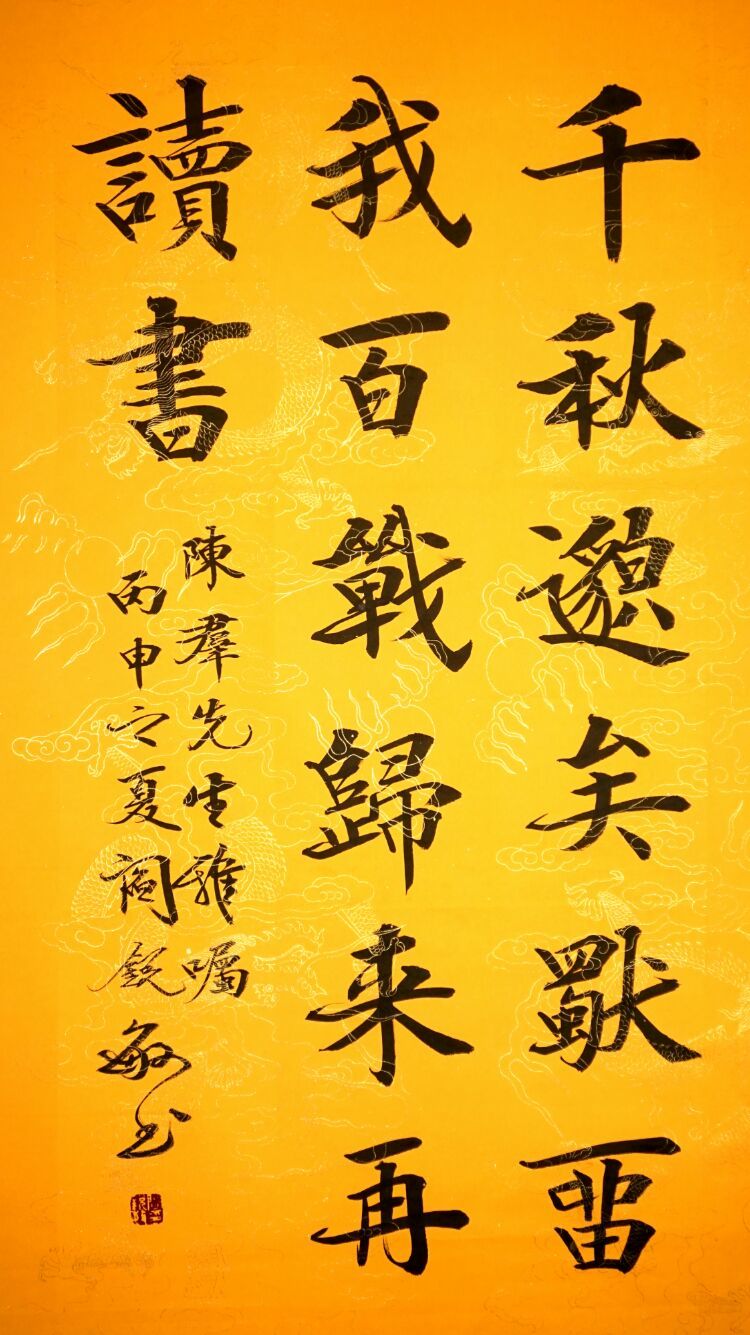 千秋邈矣獨畱
我百戰歸來再
讀書
陳羣先生雅囑
丙申之夏閻銳敏书